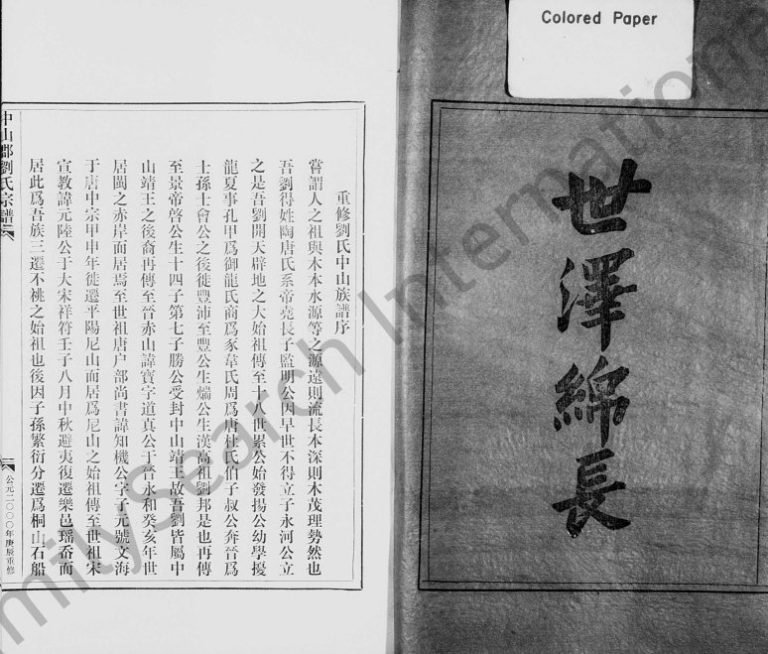 Colored Paper
世澤綿長
重修劉氏中山族譜序
嘗謂人之祖與木本水源等之源遠則流長本深則木茂理勢然也
吾劉得姓陶唐氏系帝堯長子監明公因早世不得立子永河公立
之是吾劉開天辟地之大始祖傳至十八世累公始發揚公幼學擾
龍夏事孔甲爲御龍氏商爲豕韋氏周爲唐杜氏伯子叔公奔晉爲
士孫士會公之後徙豐沛至豐公生煓公生漢高祖劉邦是也再傳
至景帝啓公生十四子第七子勝公受封中山靖王故吾劉皆屬中
山靖王之後裔再傳至晉赤山諱寶字道真公于晉永和癸亥年世
居閩之赤岸而居焉至世祖唐户部尚書諱知機公字子元號文海
于唐中宗甲申年徙遷平陽尼山而居爲尼山之始祖傳至世祖宋
宣教諱元陸公于大宋祥符壬子八月中秋避夷復遷樂邑瑶岙而
居此爲吾族三遷不祧之始祖也後因子孫繁衍分遷爲桐山石船
中山郡劉氏宗譜
公元二〇〇〇年庚辰重修
FamilySearch International